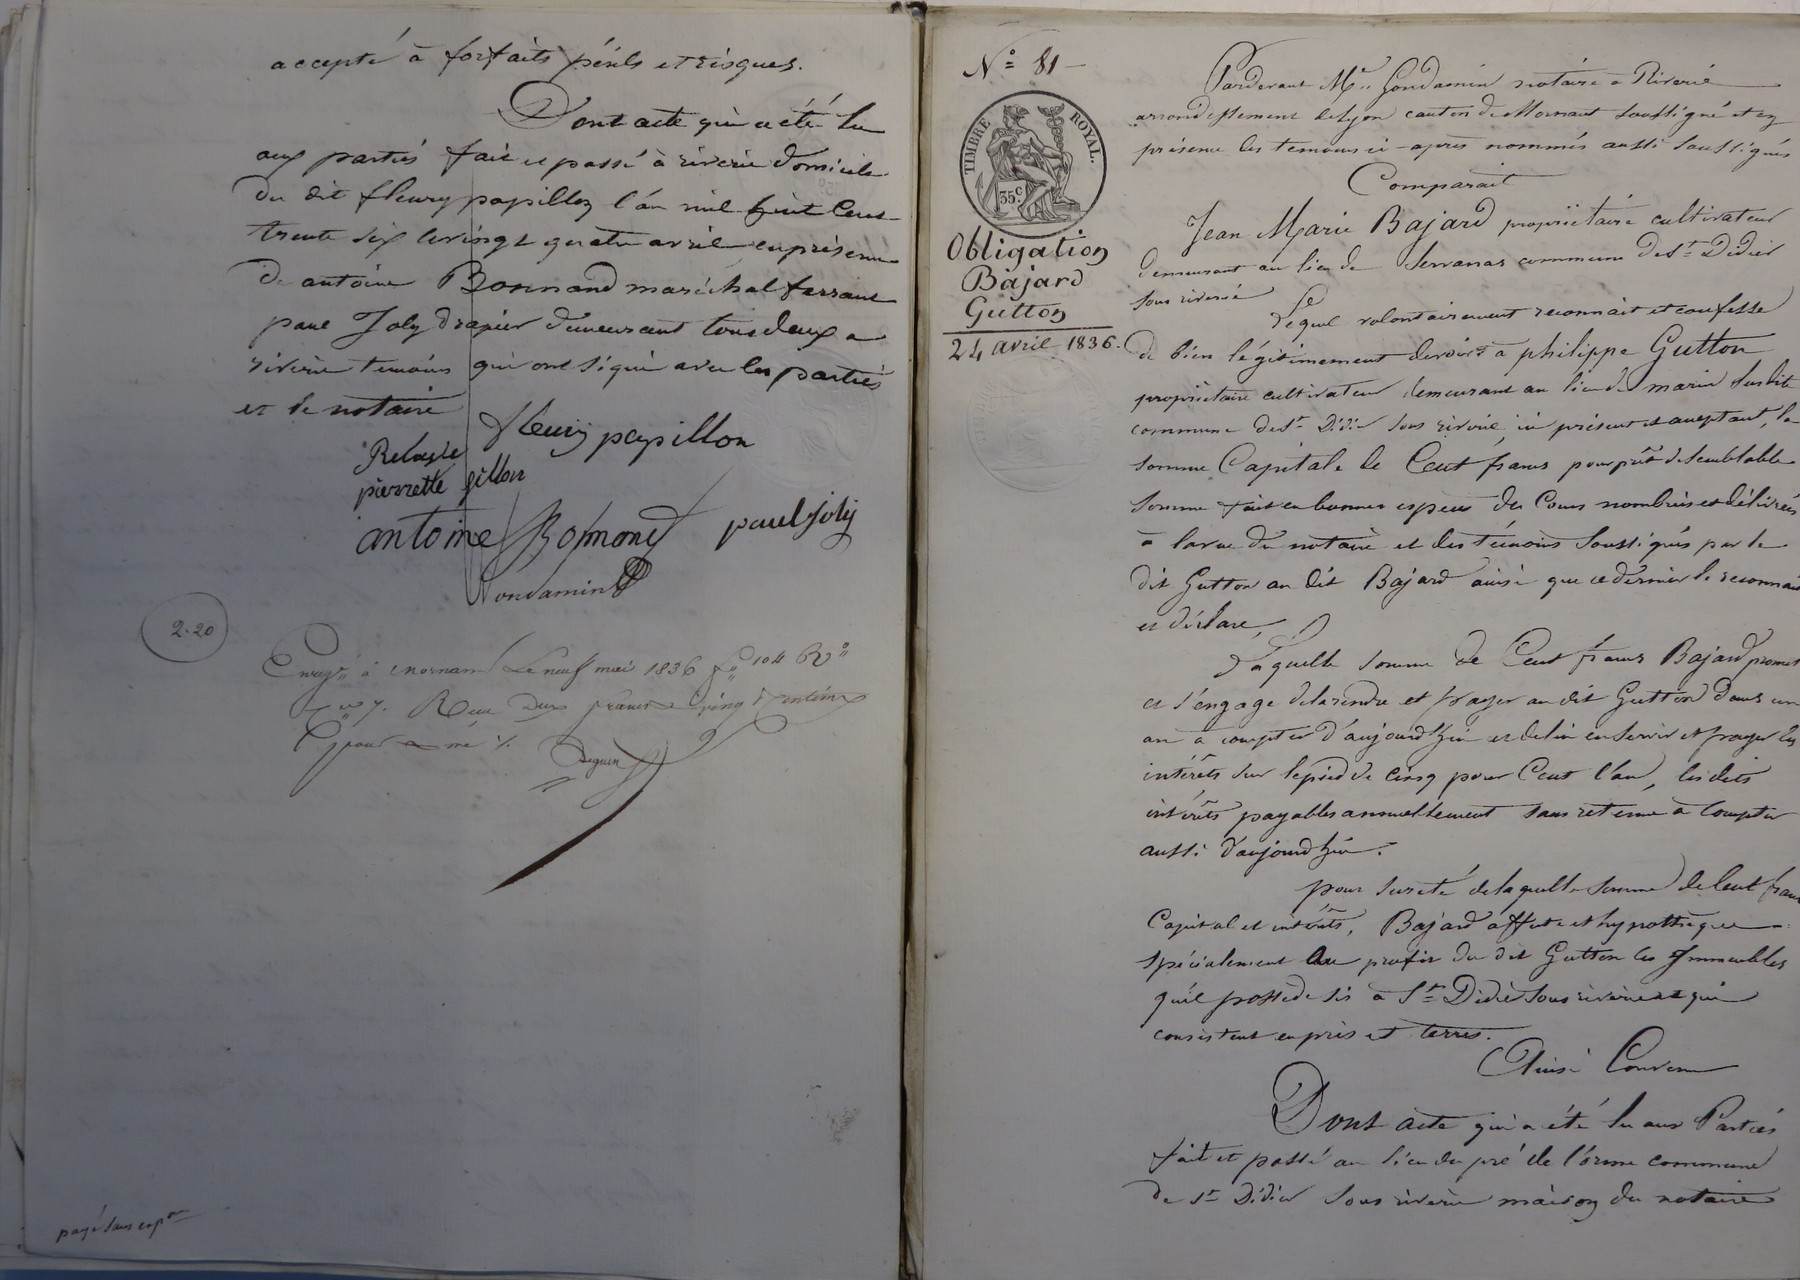 accepté à forfaits périls et risques.
Dont acte qui a été lu
aux parties fait et passé à riverie domicile
du dit fleury papillon l'an mil huit cent
trente six le vingt quatre avril en présence
de antoine Bonnand maréchal ferrant
paul Joly drapier demeurant tous deux a
riverie temoins qui ont signé avec les parties
et le notaire
fleury papillon
pierrette gillon
antoine Bonnand paul joly
Condamin
2-20
Enreg.é à mornant le neuf mai 1836 f.o 104 R.o
C.es 7. Reçu deux francs vingt centimes
payé sans exp.on
N.o 81
TIMBRE ROYAL.
35.c
Obligation
Bajard
Gutton
24 avril 1836.
Pardevant M.e Condamin notaire a Riverie
arrondissement de lyon canton de Mornant soussigné et en
présence les temoins ci-apres nommés aussi soussignés
Comparait
Jean Marie Bajard propriétaire cultivateur
demeurant au lieu de commune de St Didier
sous riverie
Lequel volontairement reconnait et confesse
de bien légitimement devoir à philippe Gutton
propriétaire cultivateur demeurant au lieu de marin susdite
commune de St Didier sous riverie, ici présent et acceptant, la
somme Capitale de Cent francs pour prêt de semblable
somme fait en bonnes especes du Cours nombrées et délivrées
a la vue du notaire et des témoins soussignés par le
dit Gutton au dit Bajard ainsi que ce dernier le reconnait
et déclare,
Laquelle somme de Cent francs Bajard promet
et s'engage de la rendre et payer au dit Gutton dans un
an à compter d'aujourd'hui et de lui en servir et payer les
intérêts sur le pied de cinq pour Cent l'an, les dits
intérêts payables annuellement sans retenue à Compter
aussi d'aujourd'hui.
pour sureté de laquelle somme de Cent francs
Capital et intérêts, Bajard affecte et hypothèque
spécialement au profit du dit Gutton les Immeubles
qu'il possede sis à St Didier sous riverie et qui
consistent en prés et terres.
Ainsi Convenu
Dont acte qui a été lu aux Parties
fait et passé au lieu du pré de l'orme commune
de St Didier sous riverie maison du notaire